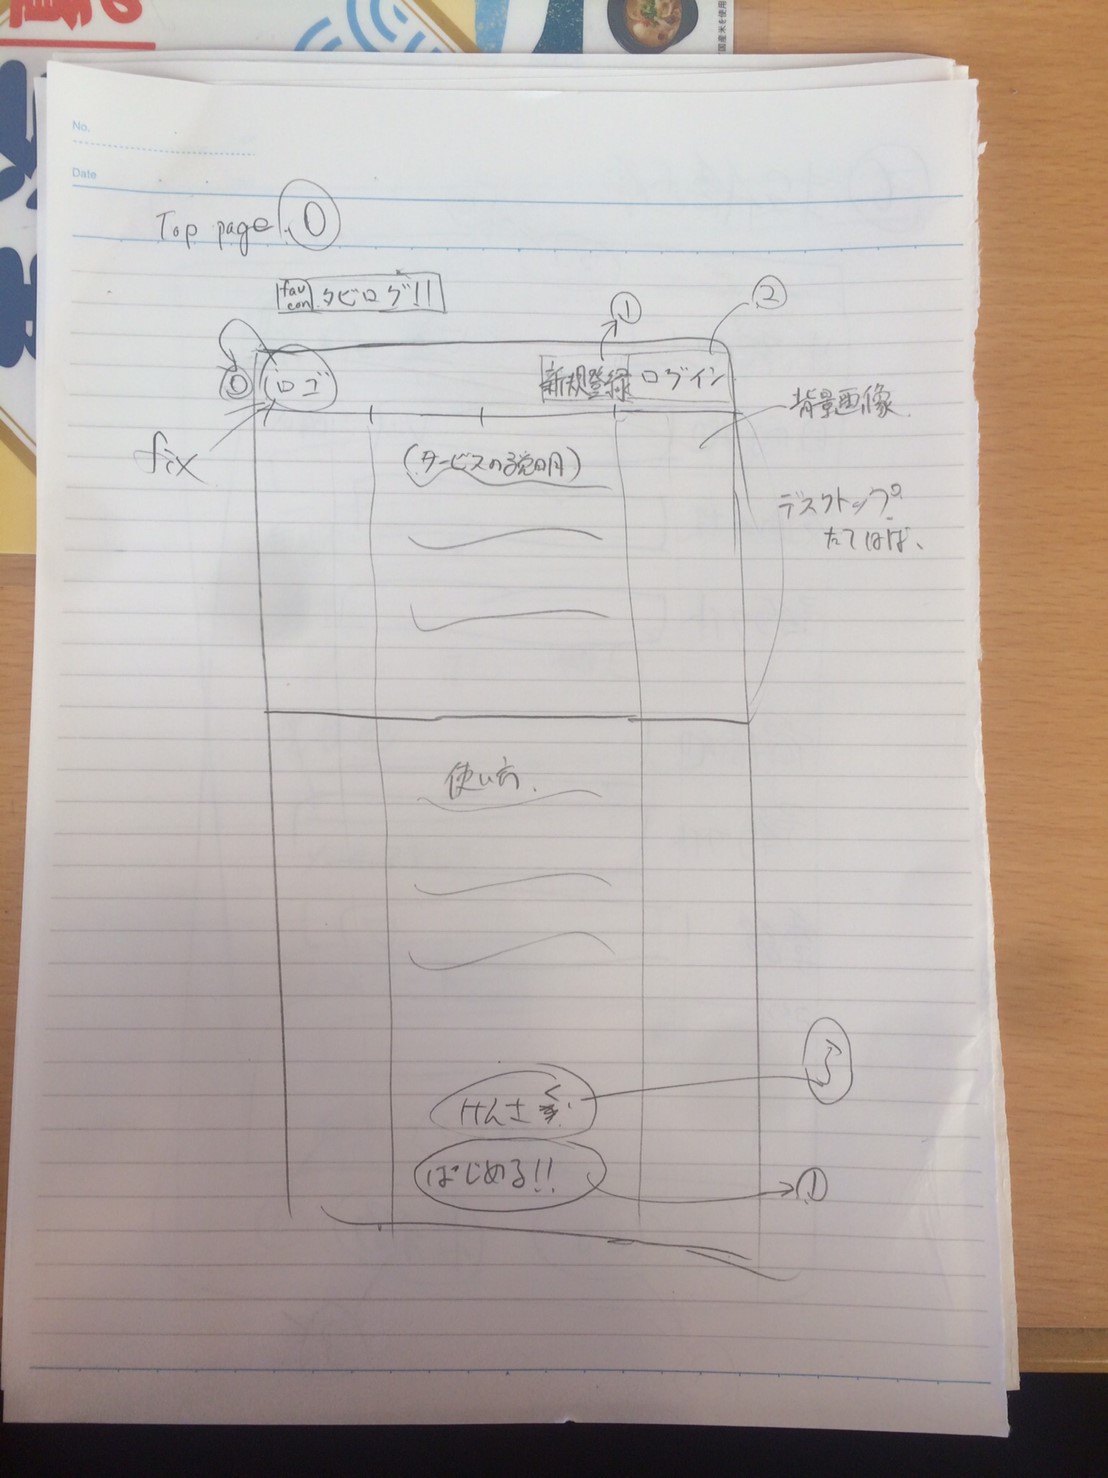 国産米を使用
No.
Date
Top page 0
fav
con タビログ!!
①
②
0
ロゴ
新規登録
ログイン
fix
背景画像
(サービスの説明)
デスクトップ
たてはば、
使い方.
けんさく
3
はじめる!!
①